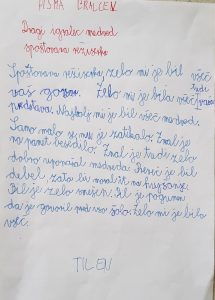 PISMA BRALCEV
Dragi igralec medved
spoštovana režiserka
Spoštovana režiserka, zelo mi je bil všeč
vaš govor. Zelo mi je bila všeč tudi vaša
predstava. Najbolj mi je bil všeč medved.
Samo malo se mi je zatikalo. Znal je
na pamet besedilo. Znal je tudi zelo
dobro oponašat medveda. Preveč je bil
debel, zato bi moral it na hujšanje.
Bil je zelo smešen. Bil je pogumn
da je govoril pred vso šolo. Zelo mi je bilo
všeč.
TILEN